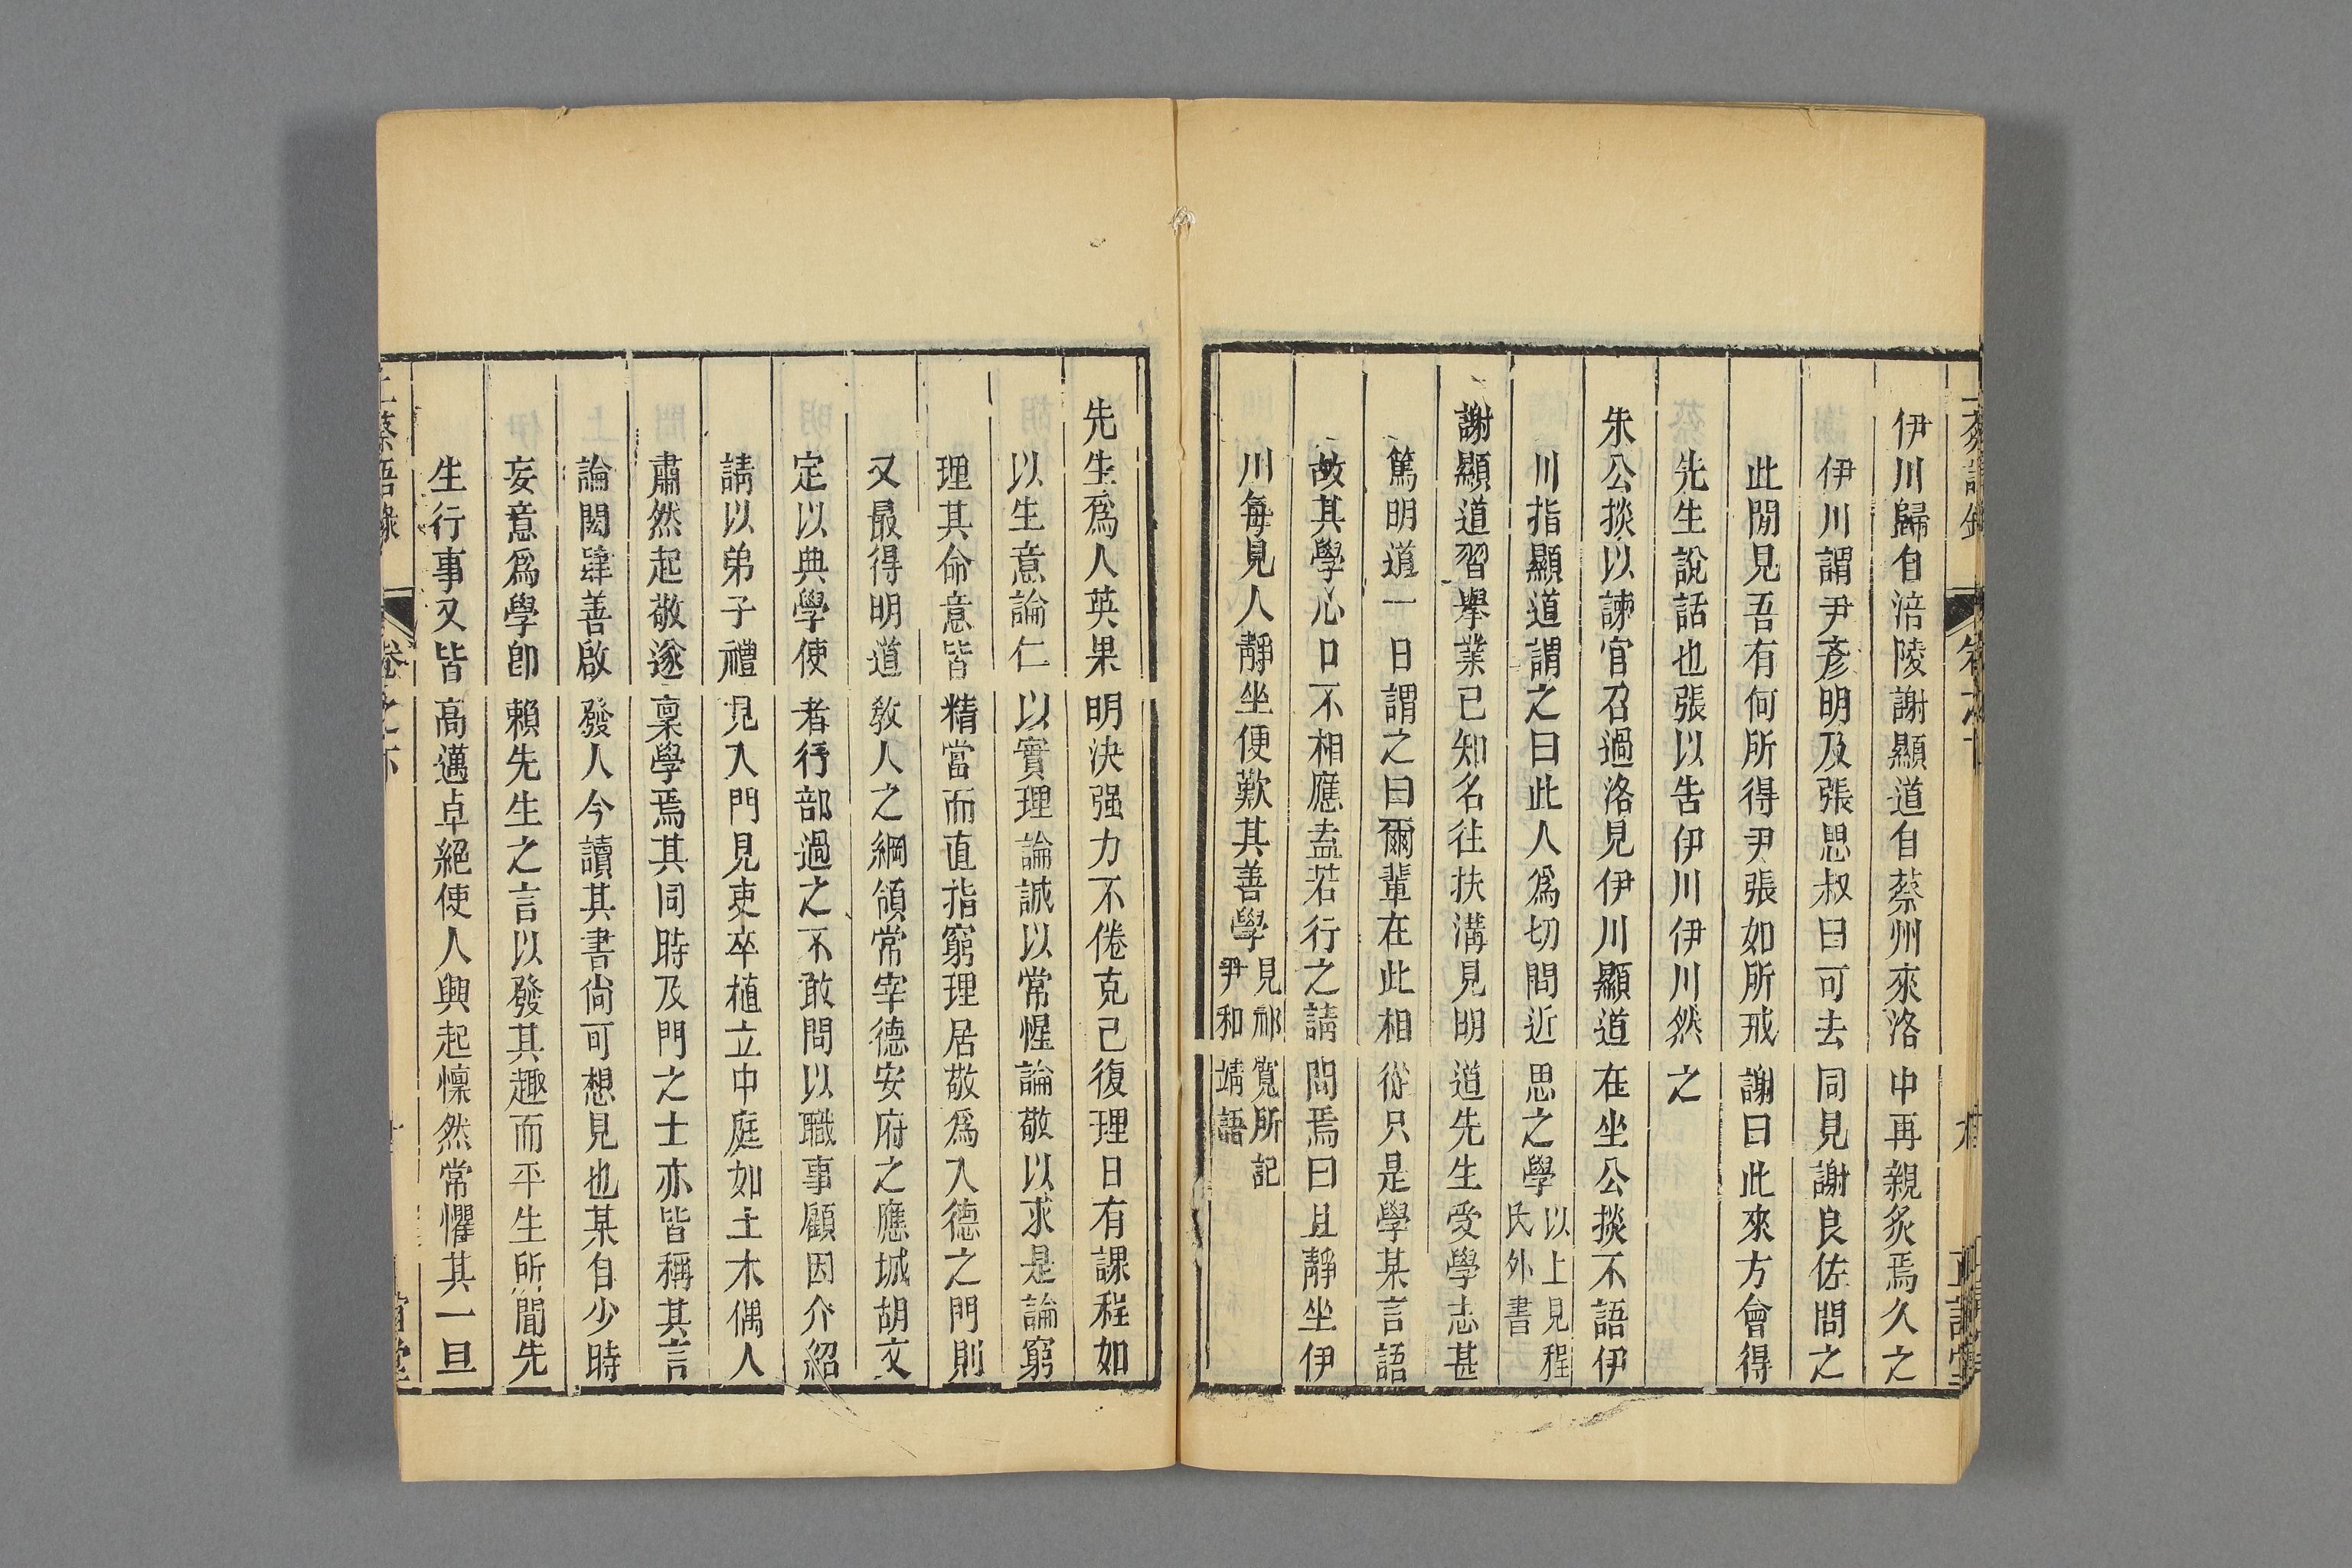 伊川歸自涪陵謝顯道自蔡州來洛中再親炙焉久之
伊川謂尹彥明及張思叔曰可去同見謝良佐問之
此閒見吾有何所得尹張如所戒謝曰此來方會得
先生說話也張以告伊川伊川然之
朱公掞以諫官召過洛見伊川顯道在坐公掞不語伊
川指顯道謂之曰此人爲切問近思之學以上見程氏外書
謝顯道習舉業已知名往扶溝見明道先生受學志甚
篤明道一日謂之曰爾輩在此相從只是學某言語
故其學心口不相應盍若行之請問焉曰且靜坐伊
川每見人靜坐便歎其善學見祁寬所記尹和靖語
先生爲人英果明決强力不倦克己復理日有課程如
以生意論仁以實理論誠以常惺論敬以求是論窮
理其命意皆精當而直指窮理居敬爲入德之門則
又最得明道教人之綱領常宰德安府之應城胡文
定以典學使者行部過之不敢問以職事顧因介紹
請以弟子禮見入門見吏卒植立中庭如土木偶人
肅然起敬遂稟學焉其同時及門之士亦皆稱其言
論閎肆善啟發人今讀其書尙可想見也某自少時
妄意爲學卽賴先生之言以發其趣而平生所聞先
生行事又皆高邁卓絕使人興起懍然常懼其一旦